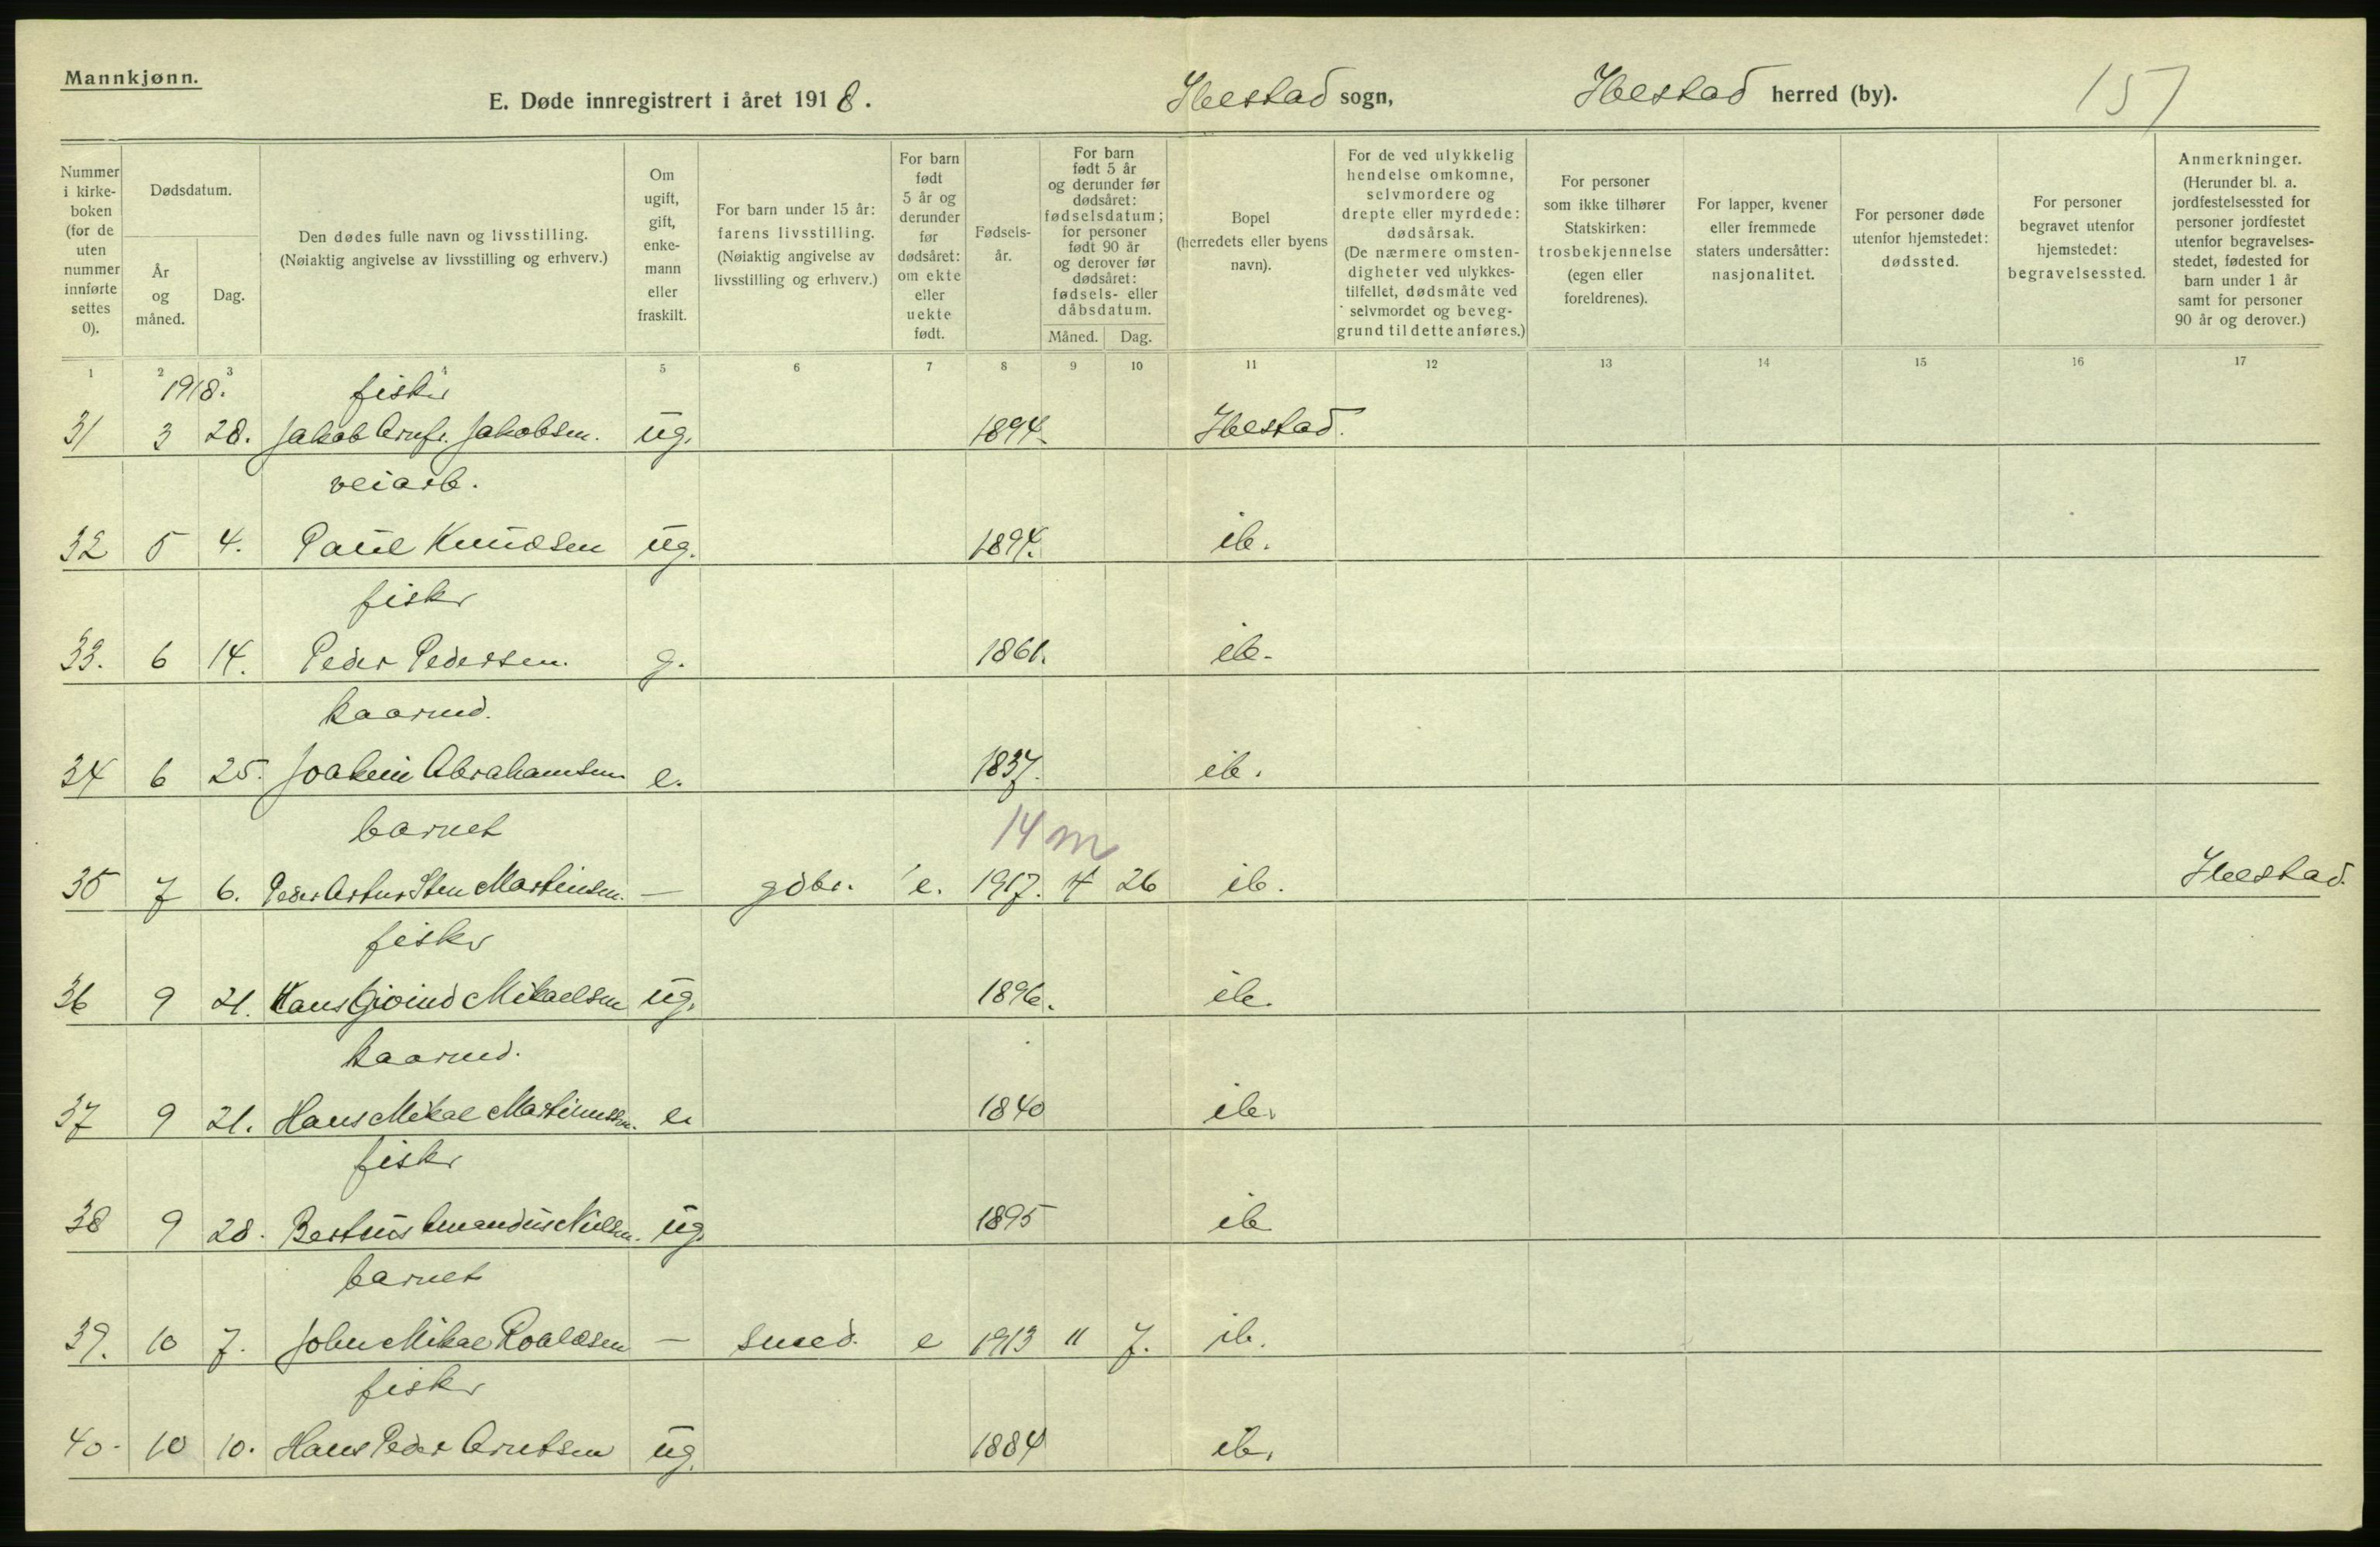 Mannkjønn.
E. Døde innregistrert i året 1918.
Ibestad sogn,
Ibestad herred (by).
157
Nummer i kirke-boken (for de uten nummer innførte settes 0).
Dødsdatum.
År og måned.
Dag.
Den dødes fulle navn og livsstilling. (Nøiaktig angivelse av livsstilling og erhverv.)
Om ugift, gift, enke-mann eller fraskilt.
For barn under 15 år: farens livsstilling. (Nøiaktig angivelse av livsstilling og erhverv.)
For barn født 5 år og derunder før dødsåret: om ekte eller uekte født.
Fødsels-år.
For barn født 5 år og derunder før dødsåret: fødselsdatum; for personer født 90 år og derover før dødsåret: fødsels- eller dåbsdatum.
Måned. Dag.
Bopel (herredets eller byens navn).
For de ved ulykkelig hendelse omkomne, selvmordere og drepte eller myrdede: dødsårsak. (De nærmere omsten-digheter ved ulykkes-tilfellet, dødsmåte ved selvmordet og beveg-grund til dette anføres.)
For personer som ikke tilhører Statskirken: trosbekjennelse (egen eller foreldrenes).
For lapper, kvener eller fremmede staters undersåtter: nasjonalitet.
For personer døde utenfor hjemstedet: dødssted.
For personer begravet utenfor hjemstedet: begravelsessted.
Anmerkninger. (Herunder bl. a. jordfestelsessted for personer jordfestet utenfor begravelses-stedet, fødested for barn under 1 år samt for personer 90 år og derover.)
1 2 3 4 5 6 7 8 9 10 11 12 13 14 15 16 17
1918. fisker
31 3 28. Jakob Jakobsen. ug. 1894. Ibestad.
veiarb.
32 5 4. Paul Knudsen ug. 1894. ib.
fisker
33. 6 14. Peder Pedersen. g. 1861. ib.
kaarmd.
34 6 25. Joakim Abrahamsen e. 1837. ib.
barnet 14 m
35 7 6. Peder Artur Sten Martinsen. — gdbr. e. 1917. 4 26 ib. Ibestad.
fisker
36 9 21. Hans Mikaelsen ug. 1896. ib.
kaarmd.
37 9 21. Hans Mikal Martinussen. e. 1840 ib.
fisker
38 9 28. Berteus Amandus Nilsen. ug. 1895 ib
barnet
39. 10 7. John Mikal Roaldsen — smed. e 1913 11 7. ib.
fisker
40. 10 10. Hans Peder Arntsen ug. 1884 ib.